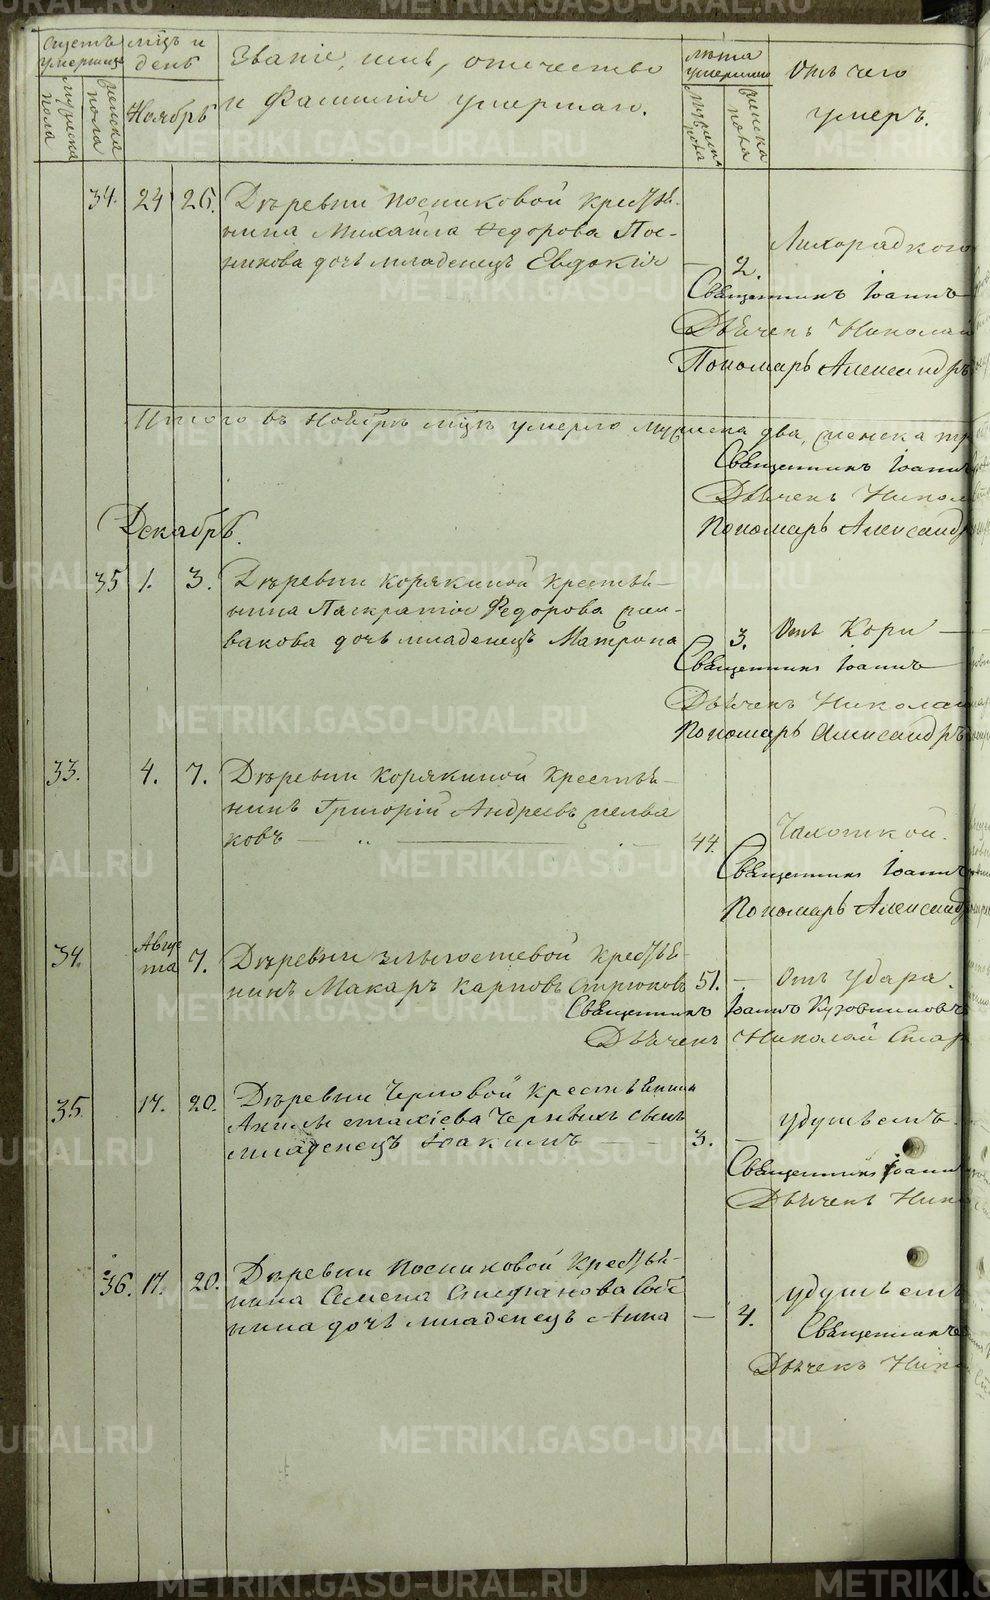 Счетъ умершихъ
мужеска пола
женска пола
Мцъ и день
Ноябрь
Званіе, имя, отечество
и Фамилія умершаго.
Лѣта умершаго
женска пола
Отъ чего
умеръ.
34. 24 26. Деревни Посниковой Кресть-
янина Михаила Ѳедорова Пос-
никова дочь младенецъ Евдокія — 2. Лихорадкою
Священникъ Іоаннъ
Дьячекъ Николай
Пономарь Александръ
Итого въ Ноябрѣ мцѣ умерло мужеска два, женска
Священникъ Іоаннъ
Дьячекъ
Пономарь
Декабрь.
35 1. 3. Деревни Корякиной крестья-
нина Панкратія Ѳедорова
дочь младенецъ Матрона 3. Отъ Кори —
Священникъ Іоаннъ
Дьячекъ Николай
Пономарь Александръ
33. 4. 7. Деревни Корякиной крестья-
нинъ Григорій Андреевъ
ковъ — 44. Чахоткой.
Священникъ Іоаннъ
Пономарь
34. Авгус
та 7. Деревни крестья-
нинъ Макаръ Карповъ Стрюковъ 51. — Отъ удара.
Священникъ Іоаннъ
Дьячекъ Николай
35. 17. 20. Деревни Черновой крестьянина
сынъ
младенецъ Іоакимъ — 3. — удушьемъ.
Священникъ Іоаннъ
Дьячекъ
36. 17. 20. Деревни Посниковой кресть-
янина Семена Стефанова
дочь младенецъ Анна — 4. удушьемъ
Священникъ
Дьячекъ
METRIKI.GASO-URAL.RU